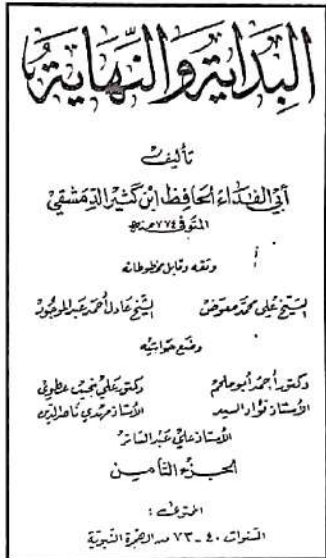 البداية والنهاية
تأليف
أبي الفداء الحافظ ابن كثير الدمشقي
المتوفى ٧٧٤ هـ
وثقه وقابل مخطوطاته
الشيخ علي محمد معوض الشيخ عادل أحمد عبد الموجود
وضع حواشيه
دكتور أحمد أبو ملحم دكتور علي نجيب عطوي
الأستاذ فؤاد السيد الأستاذ مهدي ناصر الدين
الأستاذ علي عبد الساتر
الجزء الثامن
المحتوى:
السنوات ٤٠ - ٧٣ من الهجرة النبوية